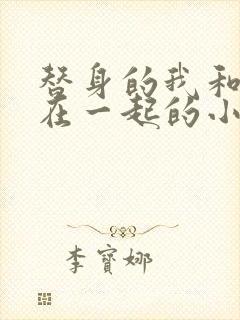 替身的我和
在一起的小
李寳娜